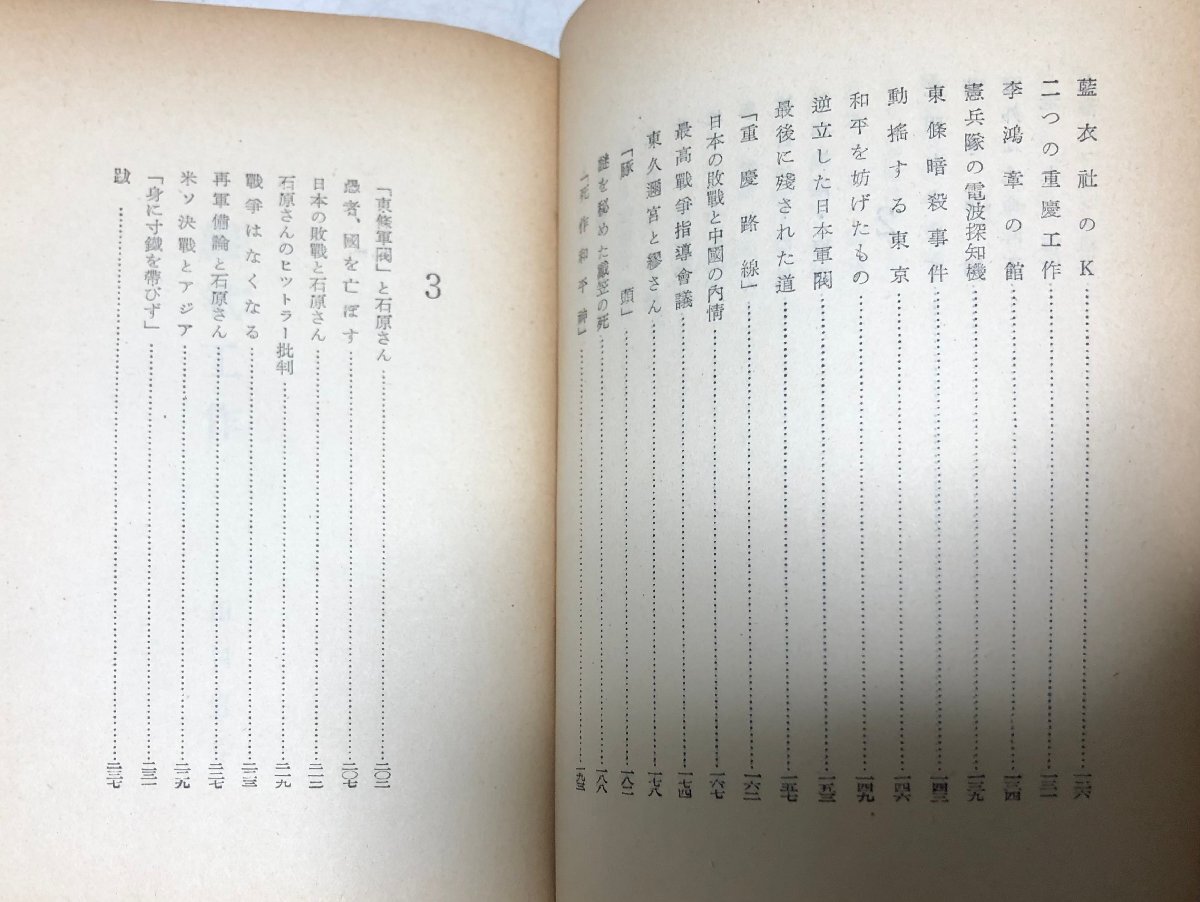 藍衣社のK……一二六
二つの重慶工作……一三一
李鴻章の館……一三四
憲兵隊の電波探知機……一三九
東條暗殺事件……一四三
動搖する東京……一四六
和平を妨げたもの……一四九
逆立した日本軍閥……一五三
最後に殘された道……一五七
「重慶路線」……一六二
日本の敗戰と中國の內情……一六七
最高戰爭指導會議……一七四
東久邇宮と繆さん……一七八
「豚頭」……一八二
謎を秘めた戴笠の死……一八八
「死作和平神」……一九三
3
「東條軍閥」と石原さん……二〇二
愚者、國を亡ぼす……二〇七
日本の敗戰と石原さん……二一二
石原さんのヒットラー批判……二一九
戰爭はなくなる……二二三
再軍備論と石原さん……二二七
米ソ決戰とアジア……二二九
「身に寸鐵を帶びず」……二三一
跋……二三七